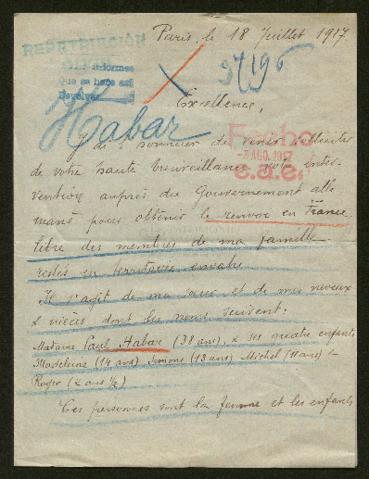 Paris, le 18 Juillet 1917.
REPATRIACIÓN
informes
Que se haga así
Devolver
37196
Excellence,
Habar
J'ai l'honneur de venir solliciter
Fecho
-3 AGO. 1917
e.a.e.
de votre haute bienveillance votre inter-
vention auprès du Gouvernement alle
mand pour obtenir le renvoi en France
libre des membres de ma famille
restés en territoire envahi.
Il s'agit de ma sœur et de mes neveux
& nièces dont les noms suivent:
Madame Paul Habar (38 ans), & ses quatre enfants,
Madeleine (14 ans) Simone (13 ans) Michel (11 ans) &
Roger (2 ans ½)
Ces personnes sont la femme et les enfants